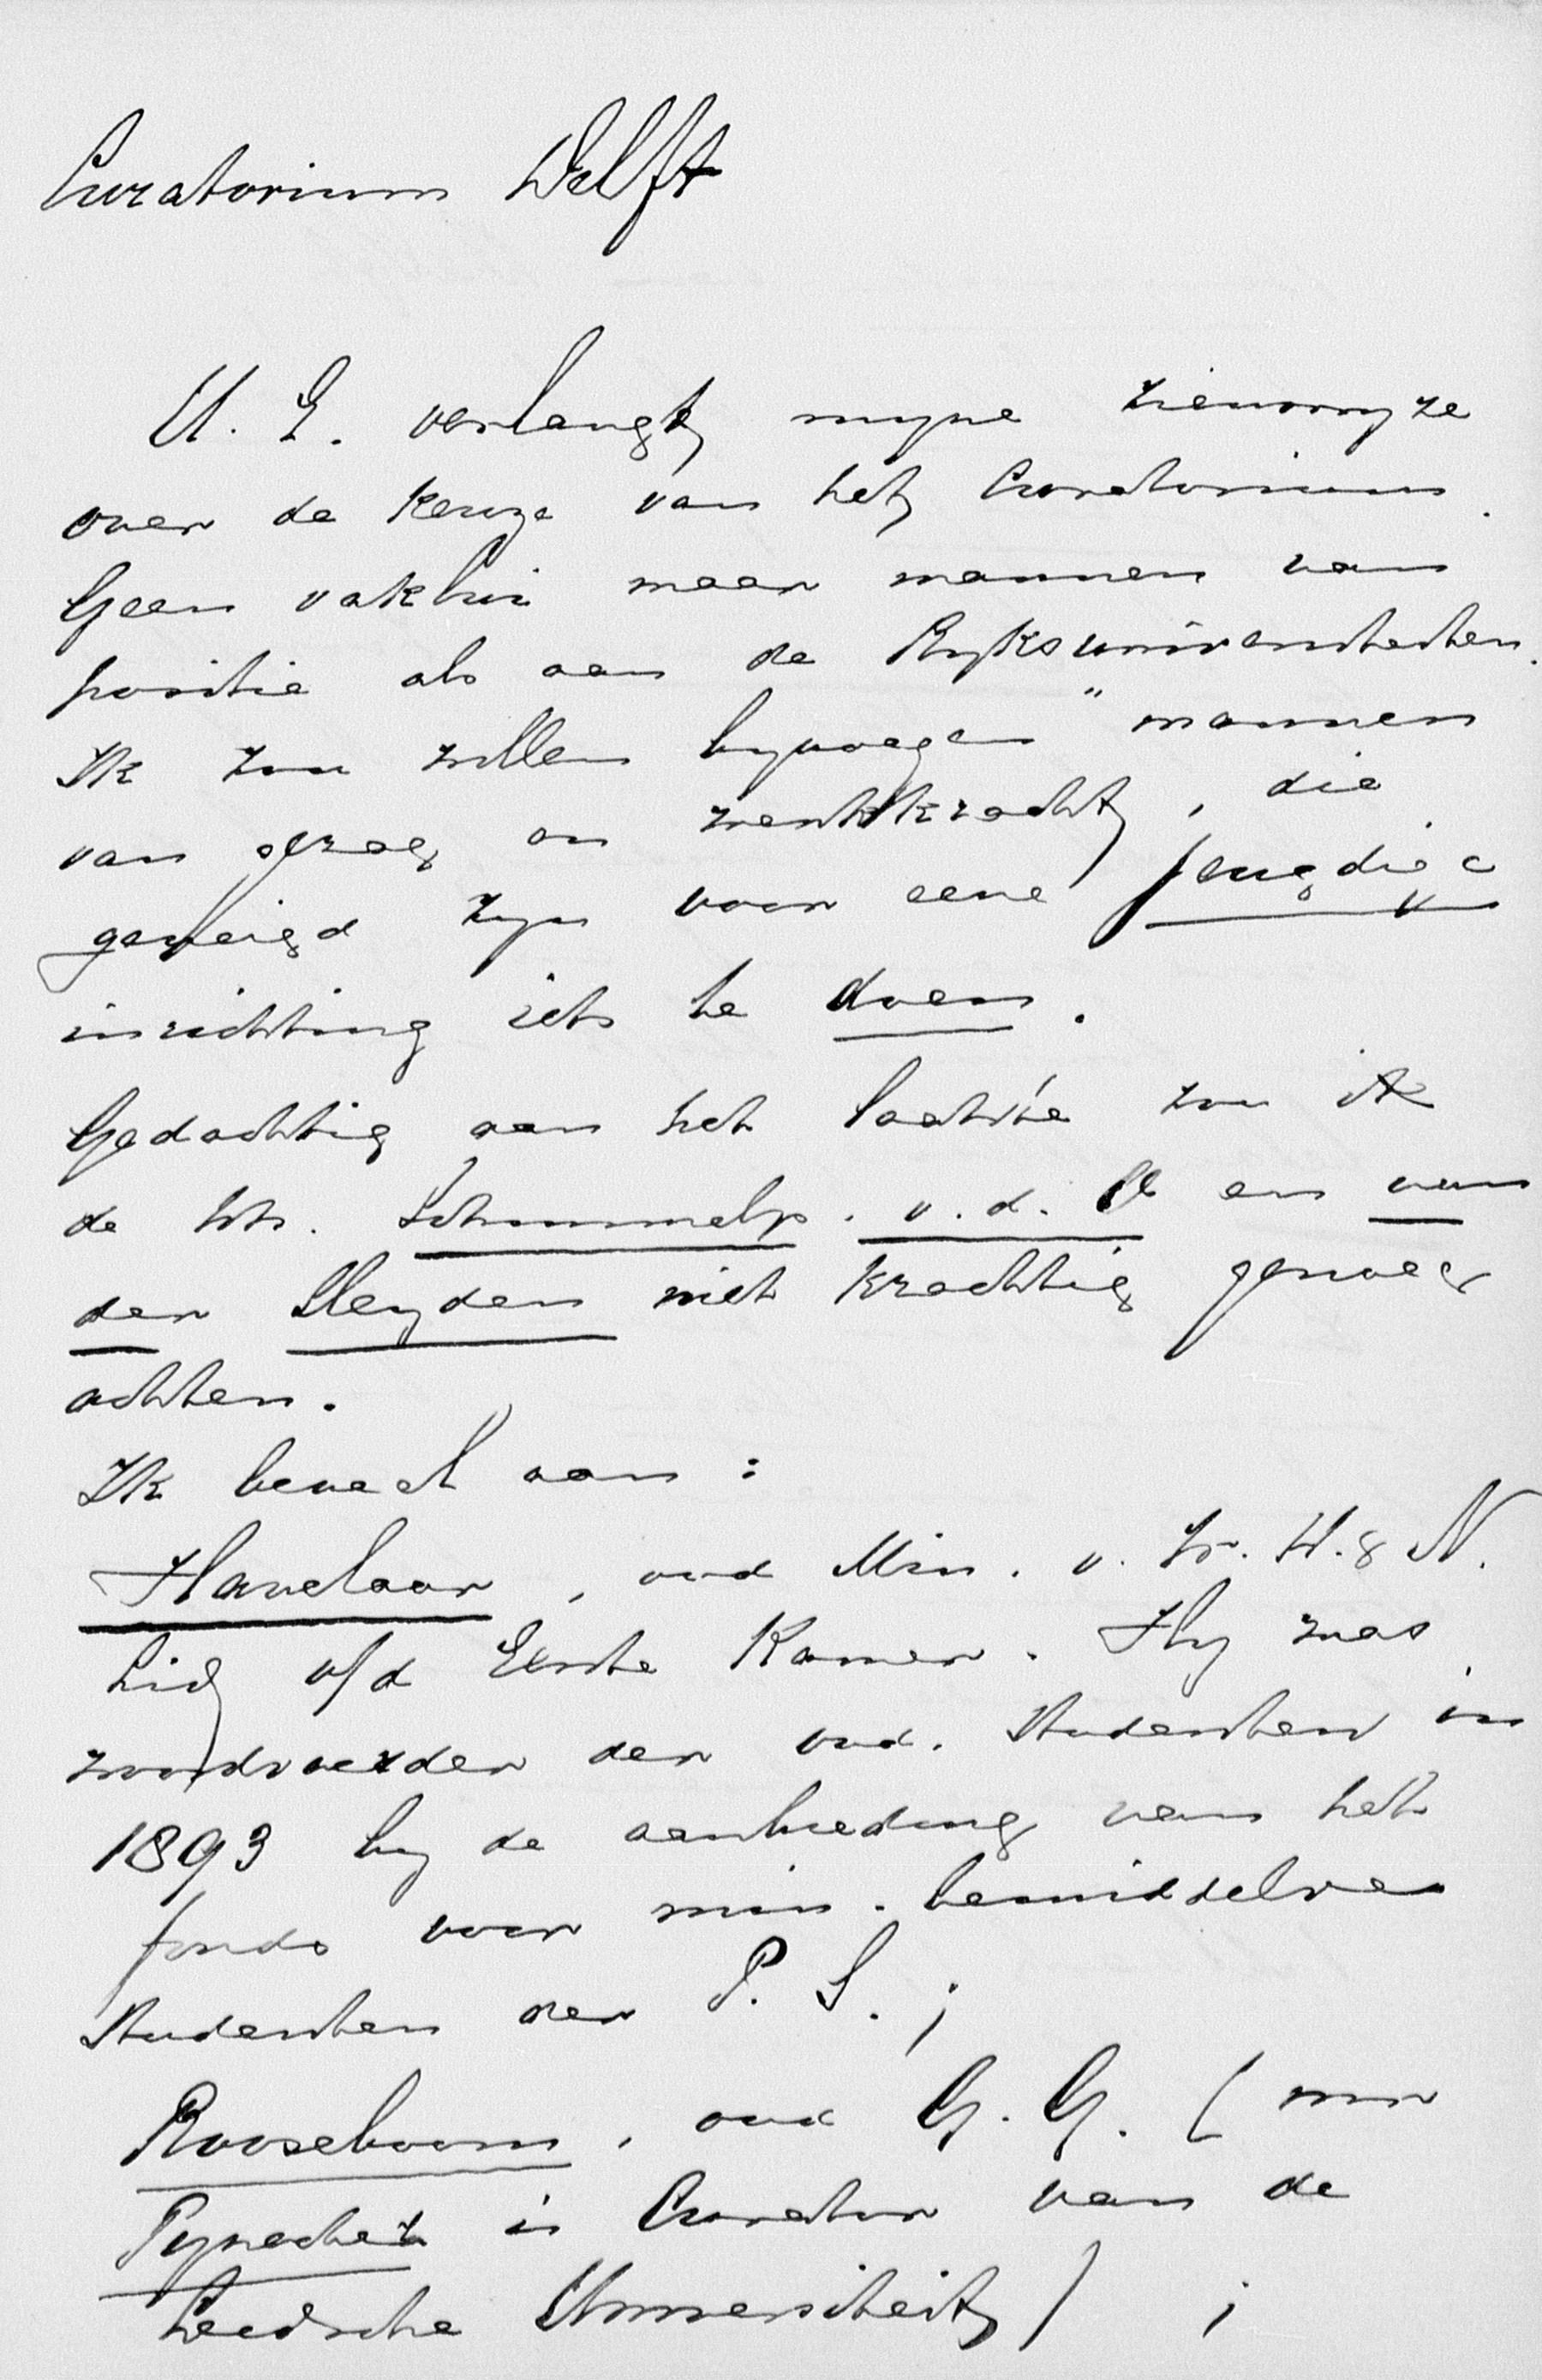 Curatorium Delft
U. E. verlangt myne zienswyze
over de keuze van het Curatorium.
Geen vaklui maar mannen van
positie als aan de Ryksuniversiteiten.
Ik zou willen byvoegen "mannen
van gezag en werkkracht, die
geneigd zyn voor eene jeugdige
inrichting iets te doen.
Gedachtig aan het laatste zou ik
de hh. Schimmelp. v. d. O en van
der Heyden niet krachtig genoeg
achten.
Ik beveel aan:
Havelaar, oud Min. v. W. H. & N.
Lid v/d Eerste Kamer. Hy was
woordvoerder der oud. studenten in
1893 by de aanbieding van het
fonds voor min. bemiddelde
studenten der P. S.;
Rooseboom, oud G. G. (
Pynacker is Curator van de
Leidsche Universiteit);